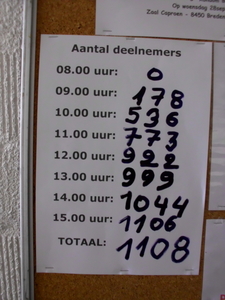 Op woensdag
Zaal Caproen - 8450 Breden
Aantal deelnemers
08.00 uur: 0
09.00 uur: 178
10.00 uur: 536
11.00 uur: 773
12.00 uur: 922
13.00 uur: 999
14.00 uur: 1044
15.00 uur: 1106
TOTAAL: 1108